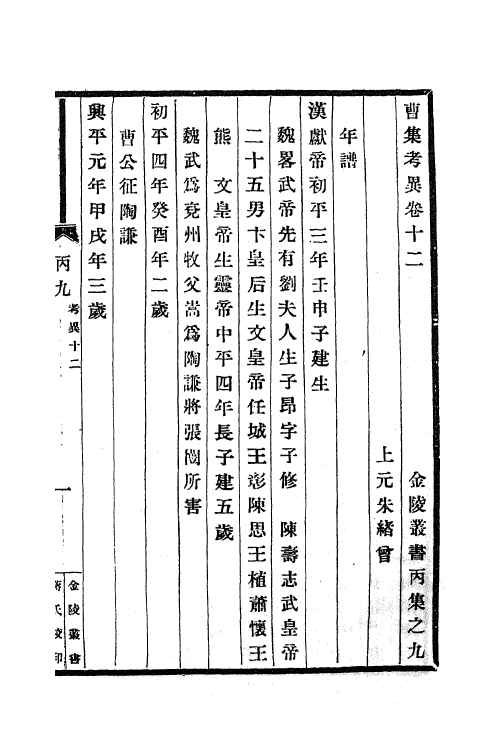 曹集考異卷十二 金陵叢書丙集之九
上元朱緒曾
年譜
漢獻帝初平三年壬申子建生
魏畧武帝先有劉夫人生子昂字子修 陳壽志武皇帝
二十五男卞皇后生文皇帝任城王彰陳思王植蕭懷王
熊 文皇帝生靈帝中平四年長子建五歲
魏武爲兗州牧父嵩爲陶謙將張闓所害
初平四年癸酉年二歲
曹公征陶謙
興平元年甲戌年三歲
丙九 考異十二 一
金陵叢書
蔣氏校印